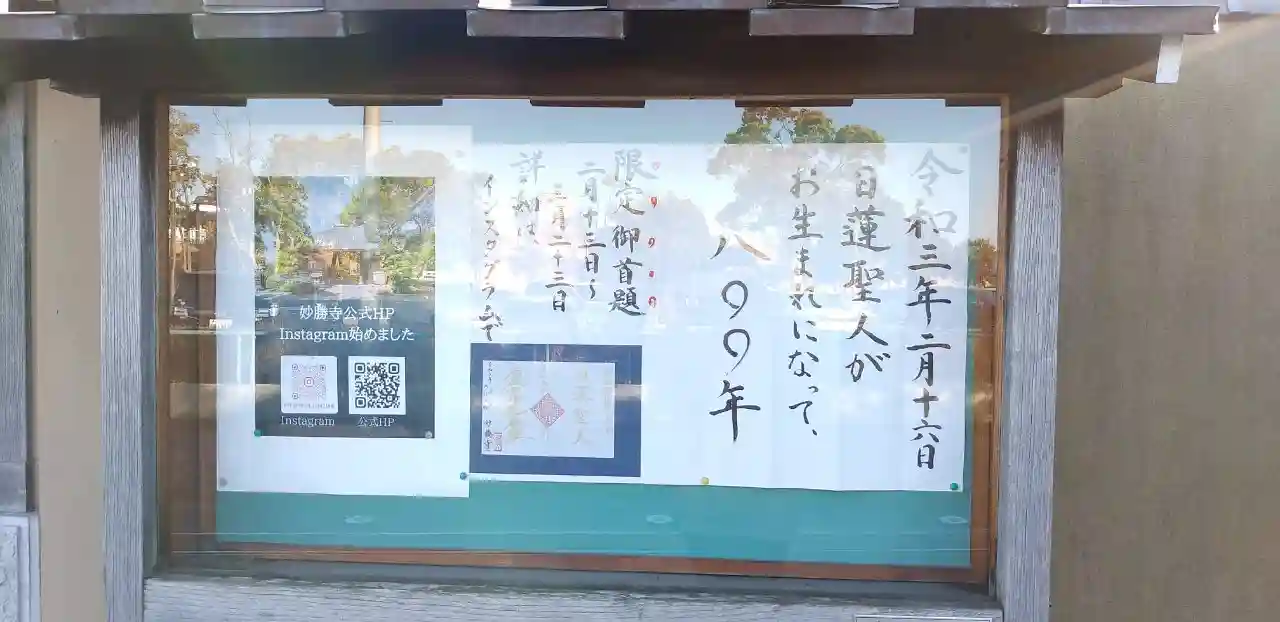 令和三年二月十六日
日蓮聖人が
お生まれになって、
八〇〇年
限定御首題
二月十三日〜
三月二十三日
詳細は、
インスタグラムで
妙勝寺公式HP
Instagram始めました
Instagram
公式HP